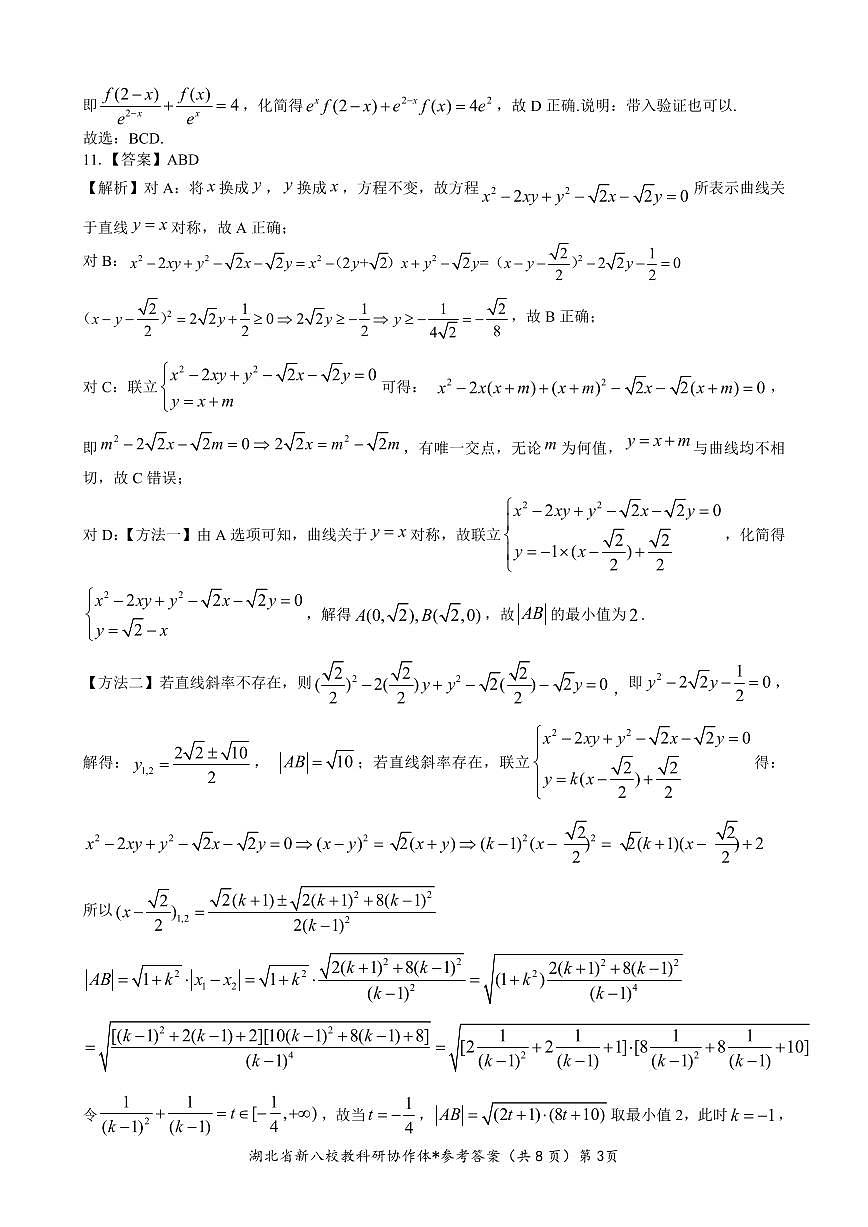 即 $\frac{f(2-x)}{e^{2-x}}+\frac{f(x)}{e^{x}}=4$，化简得 $e^{x}f(2-x)+e^{2-x}f(x)=4e^{2}$，故 D 正确.说明：带入验证也可以.
故选：BCD.
11.【答案】ABD
【解析】对 A：将 $x$ 换成 $y$，$y$ 换成 $x$，方程不变，故方程 $x^{2}-2xy+y^{2}-\sqrt{2}x-\sqrt{2}y=0$ 所表示曲线关
于直线 $y=x$ 对称，故 A 正确；
对 B：$x^{2}-2xy+y^{2}-\sqrt{2}x-\sqrt{2}y=x^{2}-（2y+\sqrt{2}）x+y^{2}-\sqrt{2}y=（x-y-\frac{\sqrt{2}}{2}）^{2}-2\sqrt{2}y-\frac{1}{2}=0$
$（x-y-\frac{\sqrt{2}}{2}）^{2}=2\sqrt{2}y+\frac{1}{2}\geq 0\Rightarrow 2\sqrt{2}y\geq-\frac{1}{2}\Rightarrow y\geq-\frac{1}{4\sqrt{2}}=-\frac{\sqrt{2}}{8}$，故 B 正确；
对 C：联立 $\begin{cases}x^{2}-2xy+y^{2}-\sqrt{2}x-\sqrt{2}y=0\\y=x+m\end{cases}$ 可得： $x^{2}-2x(x+m)+(x+m)^{2}-\sqrt{2}x-\sqrt{2}(x+m)=0$，
即 $m^{2}-2\sqrt{2}x-\sqrt{2}m=0\Rightarrow 2\sqrt{2}x=m^{2}-\sqrt{2}m$，有唯一交点，无论 $m$ 为何值，$y=x+m$ 与曲线均不相
切，故 C 错误；
对 D：【方法一】由 A 选项可知，曲线关于 $y=x$ 对称，故联立 $\begin{cases}x^{2}-2xy+y^{2}-\sqrt{2}x-\sqrt{2}y=0\\y=-1\times(x-\frac{\sqrt{2}}{2})+\frac{\sqrt{2}}{2}\end{cases}$，化简得
$\begin{cases}x^{2}-2xy+y^{2}-\sqrt{2}x-\sqrt{2}y=0\\y=\sqrt{2}-x\end{cases}$，解得 $A(0,\sqrt{2}),B(\sqrt{2},0)$，故 $|AB|$ 的最小值为 2.
【方法二】若直线斜率不存在，则 $(\frac{\sqrt{2}}{2})^{2}-2(\frac{\sqrt{2}}{2})y+y^{2}-\sqrt{2}(\frac{\sqrt{2}}{2})-\sqrt{2}y=0$，即 $y^{2}-2\sqrt{2}y-\frac{1}{2}=0$，
解得：$y_{1,2}=\frac{2\sqrt{2}\pm\sqrt{10}}{2}$， $|AB|=\sqrt{10}$；若直线斜率存在，联立 $\begin{cases}x^{2}-2xy+y^{2}-\sqrt{2}x-\sqrt{2}y=0\\y=k(x-\frac{\sqrt{2}}{2})+\frac{\sqrt{2}}{2}\end{cases}$ 得：
$x^{2}-2xy+y^{2}-\sqrt{2}x-\sqrt{2}y=0\Rightarrow(x-y)^{2}=\sqrt{2}(x+y)\Rightarrow(k-1)^{2}(x-\frac{\sqrt{2}}{2})^{2}=\sqrt{2}(k+1)(x-\frac{\sqrt{2}}{2})+2$
所以 $(x-\frac{\sqrt{2}}{2})_{1,2}=\frac{\sqrt{2}(k+1)\pm\sqrt{2(k+1)^{2}+8(k-1)^{2}}}{2(k-1)^{2}}$
$|AB|=\sqrt{1+k^{2}}\cdot|x_{1}-x_{2}|=\sqrt{1+k^{2}}\cdot\frac{\sqrt{2(k+1)^{2}+8(k-1)^{2}}}{(k-1)^{2}}=\sqrt{(1+k^{2})\frac{2(k+1)^{2}+8(k-1)^{2}}{(k-1)^{4}}}$
$=\sqrt{\frac{[(k-1)^{2}+2(k-1)+2][10(k-1)^{2}+8(k-1)+8]}{(k-1)^{4}}}=\sqrt{[2\frac{1}{(k-1)^{2}}+2\frac{1}{(k-1)}+1]\cdot[8\frac{1}{(k-1)^{2}}+8\frac{1}{(k-1)}+10]}$
令 $\frac{1}{(k-1)^{2}}+\frac{1}{(k-1)}=t\in[-\frac{1}{4},+\infty)$，故当 $t=-\frac{1}{4}$，$|AB|=\sqrt{(2t+1)\cdot(8t+10)}$ 取最小值 2，此时 $k=-1$，
湖北省新八校教科研协作体*参考答案（共 8 页）第 3页